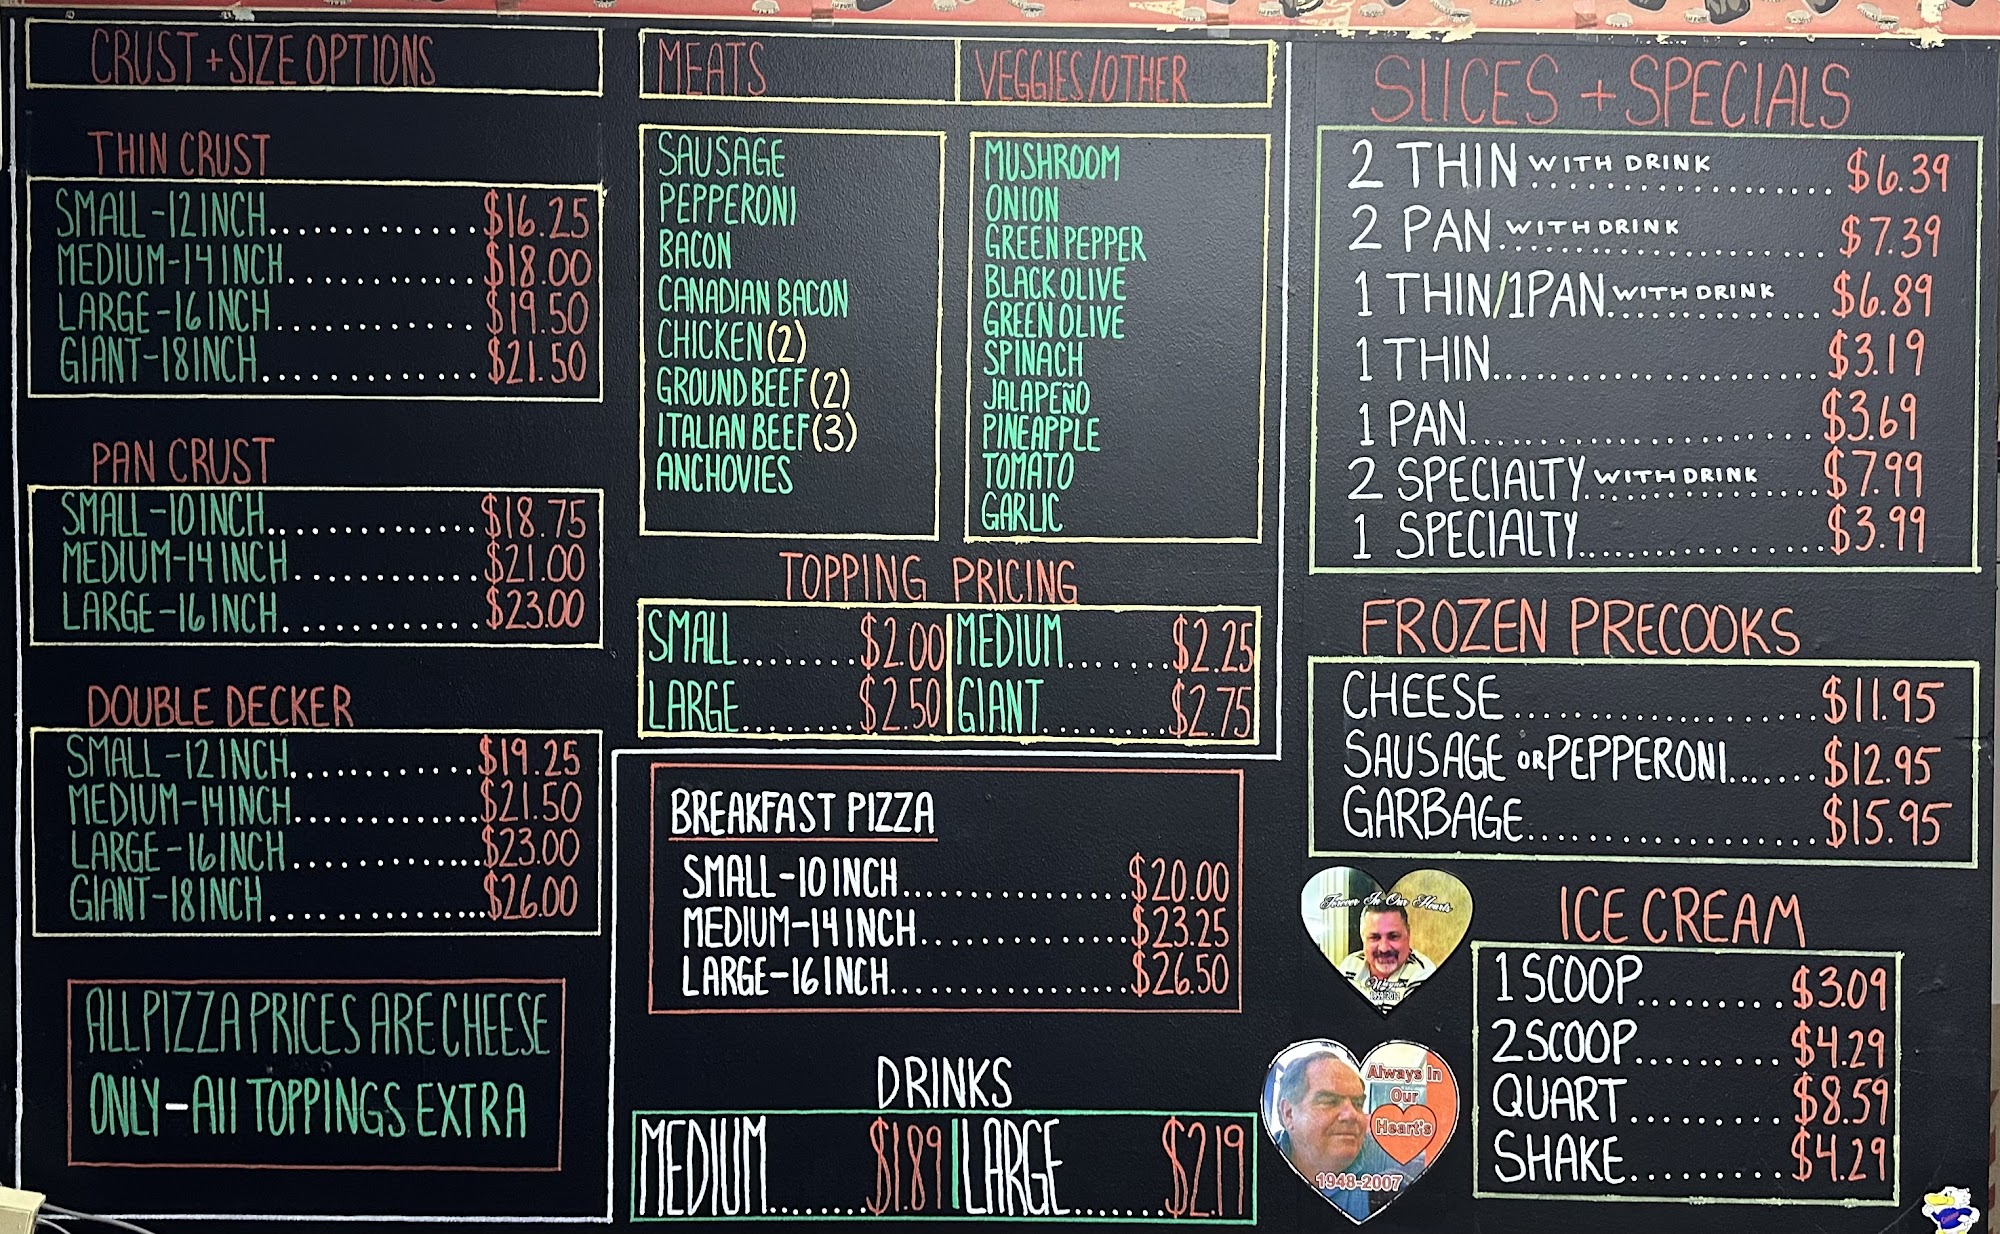 CRUST + SIZE OPTIONS
THIN CRUST
SMALL-12 INCH............. $16.25
MEDIUM-14 INCH............ $18.00
LARGE-16 INCH............ $19.50
GIANT-18 INCH............. $21.50
PAN CRUST
SMALL-10 INCH............. $18.75
MEDIUM-14 INCH............ $21.00
LARGE-16 INCH............ $23.00
DOUBLE DECKER
SMALL-12 INCH............ $19.25
MEDIUM-14 INCH............ $21.50
LARGE-16 INCH............ $23.00
GIANT-18 INCH.............. $26.00
ALL PIZZA PRICES ARE CHEESE
ONLY-All TOPPINGS EXTRA
MEATS
SAUSAGE
PEPPERONI
BACON
CANADIAN BACON
CHICKEN (2)
GROUND BEEF (2)
ITALIAN BEEF (3)
ANCHOVIES
VEGGIES/OTHER
MUSHROOM
ONION
GREEN PEPPER
BLACK OLIVE
GREEN OLIVE
SPINACH
JALAPEÑO
PINEAPPLE
TOMATO
GARLIC
TOPPING PRICING
SMALL........ $2.00 MEDIUM....... $2.25
LARGE........ $2.50 GIANT........ $2.75
BREAKFAST PIZZA
SMALL-10 INCH................ $20.00
MEDIUM-14 INCH............... $23.25
LARGE-16 INCH................. $26.50
DRINKS
MEDIUM........ $1.89 LARGE....... $2.19
SLICES + SPECIALS
2 THIN WITH DRINK ................ $6.39
2 PAN WITH DRINK .................. $7.39
1 THIN/1 PAN WITH DRINK ............ $6.89
1 THIN.................. $3.19
1 PAN................... $3.69
2 SPECIALTY WITH DRINK ............. $7.99
1 SPECIALTY.............. $3.99
FROZEN PRECOOKS
CHEESE ................. $11.95
SAUSAGE OR PEPPERONI...... $12.95
GARBAGE................ $15.95
Forever In Our Hearts
Wayne
Always In
Our
Heart's
1948-2007
ICE CREAM
1 SCOOP......... $3.09
2 SCOOP......... $4.29
QUART......... $8.59
SHAKE......... $4.29